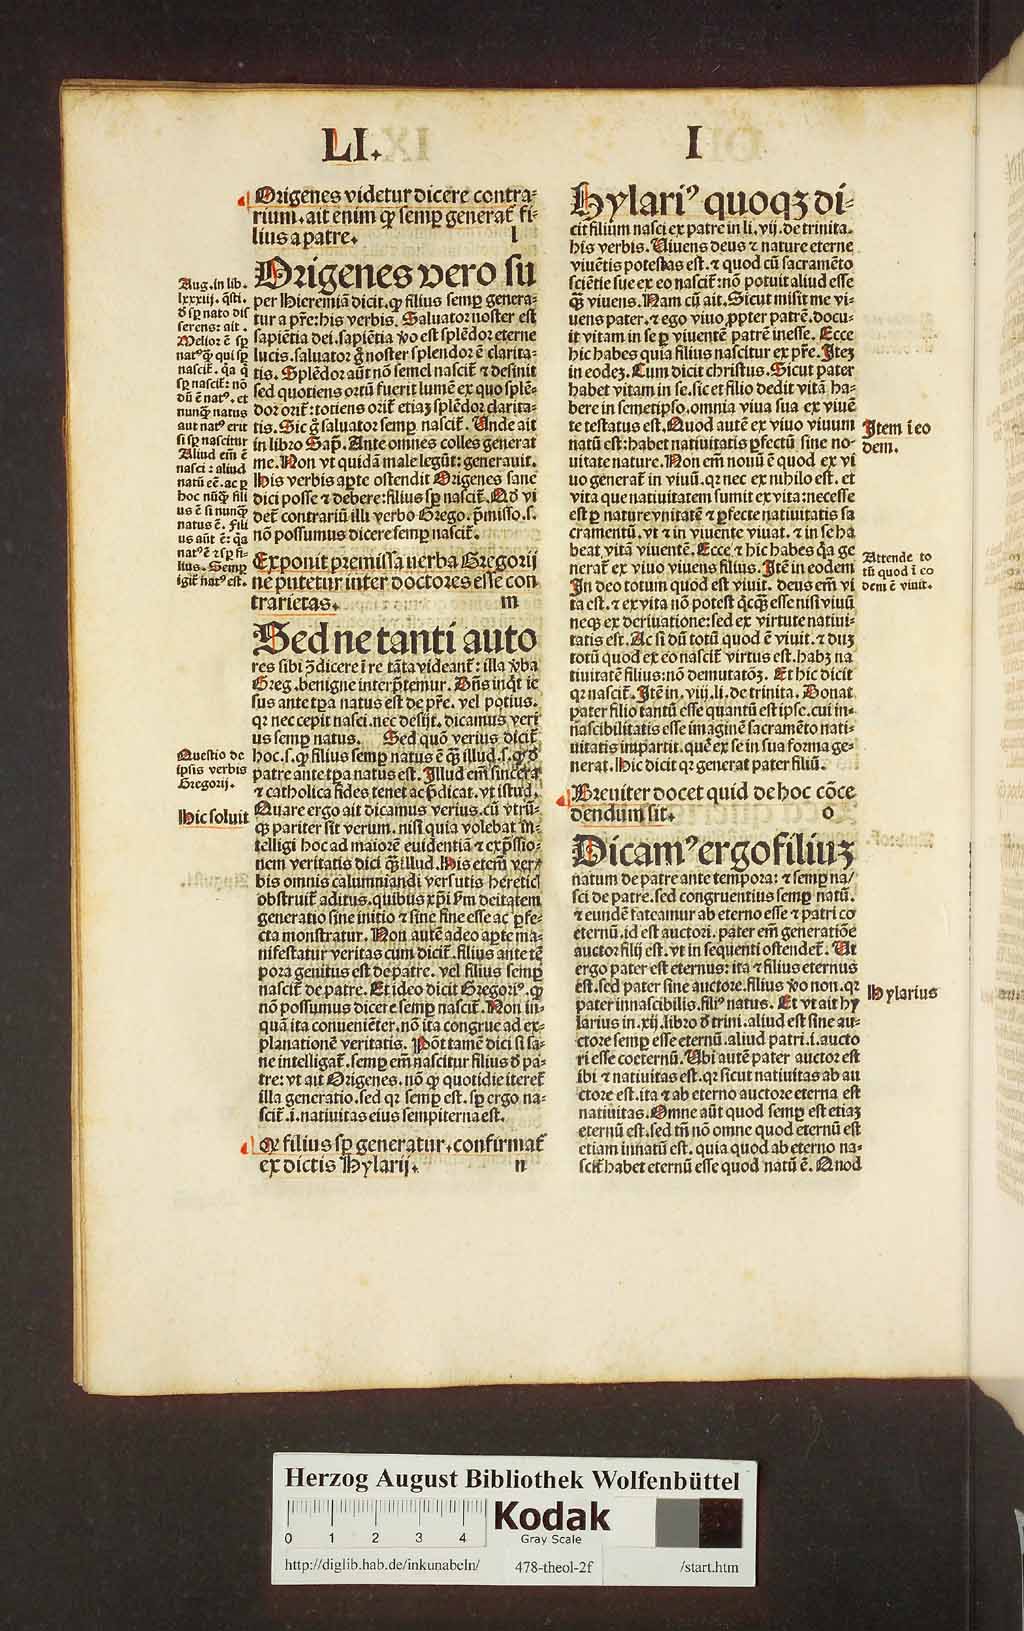 LI.
I
Origenes videtur dicere contra⸗
rium. ait enim ꝙ semꝑ generat᷑ fi⸗
lius a patre. l
Origenes vero su
per Hieremiā dicit. ꝙ filius semꝑ genera⸗
tur a pr̄e: his verbis. Saluator noster est
sapiētia dei. sapiētia v̄o est splēdor eterne
lucis. saluator g̊ noster splendor ē clarita⸗
tis. Splēdor aūt nō semel nascit᷑ ⁊ desinit
sed quotiens ortū fuerit lumē ex quo splē⸗
dor orit᷑: totiens orit᷑ etiaꝫ splēdor clarita⸗
tis. Sic g̊ saluator semꝑ nascit᷑. Unde ait
in libro Sap̄. Ante omnes colles generat
me. Non vt quidā male legūt: generauit.
His verbis aꝑte ostendit Origenes sane
dici posse ⁊ debere: filius sꝑ nascit᷑. Qd̓ vi
det᷑ contrariū illi verbo Grego. p̄misso. s.
nō possumus dicere semꝑ nascit᷑.
Exponit premissa uerba Gregorij
ne putetur inter doctores esse con
trarietas. m
Sed ne tanti auto
res sibi ↄ̄dicere ī re tāta videant᷑: illa v̄ba
Greg. benigne interp̄temur. Dn̄s inq̇t ie
sus ante tꝑa natus est de pr̄e. vel potius.
qꝛ nec cepit nasci. nec desijt. dicamus veri
us semꝑ natus. Sed quō verius dicit᷑
hoc. s. ꝙ filius semꝑ natus ē q̄ꝫ illud. s. qd̓ d̓
patre ante tꝑa natus est. Illud em̄ sincera
⁊ catholica fides tenet ac p̄dicat. vt istud.
Quare ergo ait dicamus verius. cū vtrū⸗
qꝫ pariter sit verum. nisi quia volebat in⸗
telligi hoc ad maiorē euidentiā ⁊ exp̄ssio⸗
nem veritatis dici q̄ꝫ illud. His etem̄ ver⸗
bis omnis calumniandi versutis heretic̄
obstruit᷑ aditus. quibus xp̄i ẜm deitatem
generatio sine initio ⁊ sine fine esse ac ꝑfe⸗
cta monstratur. Non autē adeo aꝑte ma⸗
nifestatur veritas cum dicit᷑. filius ante tē
pora genitus est de patre. vel filius semꝑ
nascit᷑ de patre. Et ideo dicit Gregoriꝰ. ꝙ
nō possumus dicere semꝑ nascit᷑. Non in⸗
quā ita conueniēter. nō ita congrue ad ex⸗
planationē veritatis. Pōt tamē dici si sa⸗
ne intelligat᷑. semꝑ em̄ nascitur filius d̓ pa⸗
tre: vt ait Origenes. nō ꝙ quotidie iteret᷑
illa generatio. sed qꝛ semꝑ est. sꝑ ergo na⸗
scit᷑. i. natiuitas eius sempiterna est.
Qꝙ filius sꝑ generatur. confirmat᷑
ex dictis Hylarij. n
Aug. in lib.
lxxxiij. q̄sti.
d̓ sꝑ nato dis
serens: ait.
Melior ē sꝑ
natꝰ qꝫ qui sꝑ
nascit᷑. q̇a q̇
sꝑ nascit᷑: nō
dū ē natꝰ. et
nunqꝫ natus
aut natꝰ erit
si sꝑ nascitur
Aliud em̄ ē
nasci: aliud
natū eē. ac ꝑ
hoc nūqꝫ fili
us ē si nunqꝫ
natus ē. Fili
us aūt ē: q̇a
natꝰ ē ⁊ sꝑ fi⸗
lius. Semꝑ
igit᷑ natꝰ est.
Questio de
ipsis verbis
Gregorij.
Hic soluit
Hylariꝰ quoqꝫ di⸗
cit filium nasci ex patre in li. vij. de trinita.
his verbis. Uiuens deus ⁊ nature eterne
viuētis potestas est. ⁊ quod cū sacramēto
sciētie sue ex eo nascit᷑: nō potuit aliud esse
q̄ꝫ viuens. Nam cū ait. Sicut misit me vi⸗
uens pater. ⁊ ego viuo ꝓpter patrē. docu⸗
it vitam in se ꝑ viuentē patrē inesse. Ecce
hic habes quia filius nascitur ex pr̄e. Iteꝫ
in eodeꝫ. Cum dicit christus. Sicut pater
habet vitam in se. sic et filio dedit vitā ha⸗
bere in semetipso. omnia viua sua ex viuē
te testatus est. Quod autē ex viuo viuum
natū est: habet natiuitatis ꝑfectū sine no⸗
uitate nature. Non em̄ nouū ē quod ex vi
uo generat᷑ in viuū. qꝛ nec ex nihilo est. et
vita que natiuitatem sumit ex vita: necesse
est ꝑ nature vnitatē ⁊ ꝑfecte natiuitatis sa
cramentū. vt ⁊ in viuente viuat. ⁊ in se ha
beat vitā viuentē. Ecce ⁊ hic habes q̇a ge
nerat᷑ ex viuo viuens filius. Itē in eodem
In deo totum quod est viuit. deus em̄ vi
ta est. ⁊ ex vita nō potest q̇cq̄ꝫ esse nisi viuū
neqꝫ ex deriuatione: sed ex virtute natiui⸗
tatis est. Ac si dū totū quod ē viuit. ⁊ duꝫ
totū quod ex eo nascit᷑ virtus est. habꝫ na
tiuitatē filius: nō demutatōꝫ. Et hic dicit
qꝛ nascit᷑. Itē in. viij. li. de trinita. Donat
pater filio tantū esse quantū est ipse. cui in⸗
nascibilitatis esse imaginē sacramēto nati⸗
uitatis impartit. quē ex se in sua forma ge⸗
nerat. Hic dicit qꝛ generat pater filiū.
Breuiter docet quid de hoc cōce
dendum sit. o
Dicamꝰ ergo filiuꝫ
natum de patre ante tempora: ⁊ semꝑ na⸗
sci de patre. sed congruentius semꝑ natū.
⁊ eundē fateamur ab eterno esse ⁊ patri co
eternū. id est auctori. pater em̄ generatiōe
auctor filij est. vt in sequenti ostendet᷑. Ut
ergo pater est eternus: ita ⁊ filius eternus
est. sed pater sine auctore. filius v̄o non. qꝛ
pater innascibilis. filiꝰ natus. Et vt ait hy
larius in. xij. libro d̓ trini. aliud est sine au⸗
ctore semꝑ esse eternū. aliud patri. i. aucto
ri esse coeternū. Ubi autē pater auctor est
ibi ⁊ natiuitas est. qꝛ sicut natiuitas ab au
ctore est. ita ⁊ ab eterno auctore eterna est
natiuitas. Omne aūt quod semꝑ est etiaꝫ
eternū est. sed tn̄ nō omne quod eternū est
etiam innatū est. quia quod ab eterno na⸗
scit᷑ habet eternū esse quod natū ē. Quod
Item ī eo
dem.
Attende to
tū quod ī eo
dem ē viuit.
Hylarius
Herzog August Bibliothek Wolfenbüttel
Kodak
Gray Scale
0 1 2 3 4
http://diglib.hab.de/inkunabeln/ 478-theol-2f /start.htm